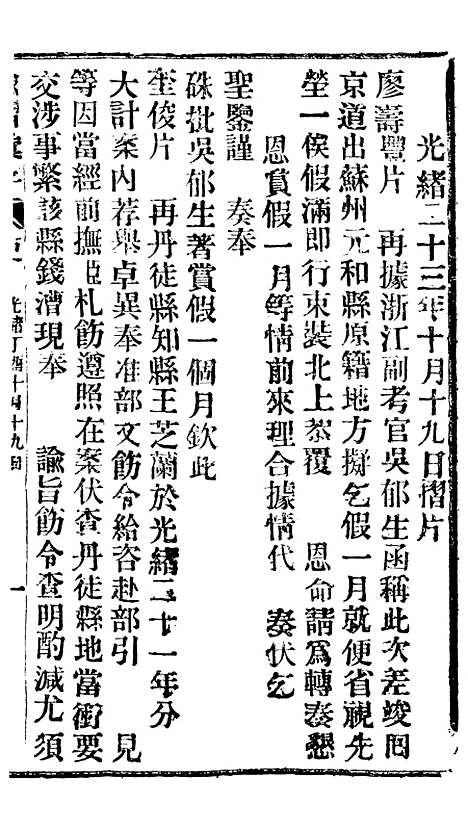 光緒二十三年十月十九日摺片
廖壽豐片　再據浙江副考官吳郁生函稱此次差竣囘
京道出蘇州元和縣原籍地方擬乞假一月就便省視先
塋一俟假滿即行束裝北上恭覆　恩命請爲轉奏懇
恩賞假一月等情前來理合據情代　奏伏乞
聖鑒謹　奏奉
硃批吳郁生著賞假一個月欽此
奎俊片　再丹徒縣知縣王芝蘭於光緒二十一年分
大計案內荐舉卓異奉准部文飭令給咨赴部引　見
等因當經前撫臣札飭遵照在案伏查丹徒縣地當衝要
交涉事繁該縣錢漕現奉　諭旨飭令查明酌減尤須
光緒丁酉十月十九日
一